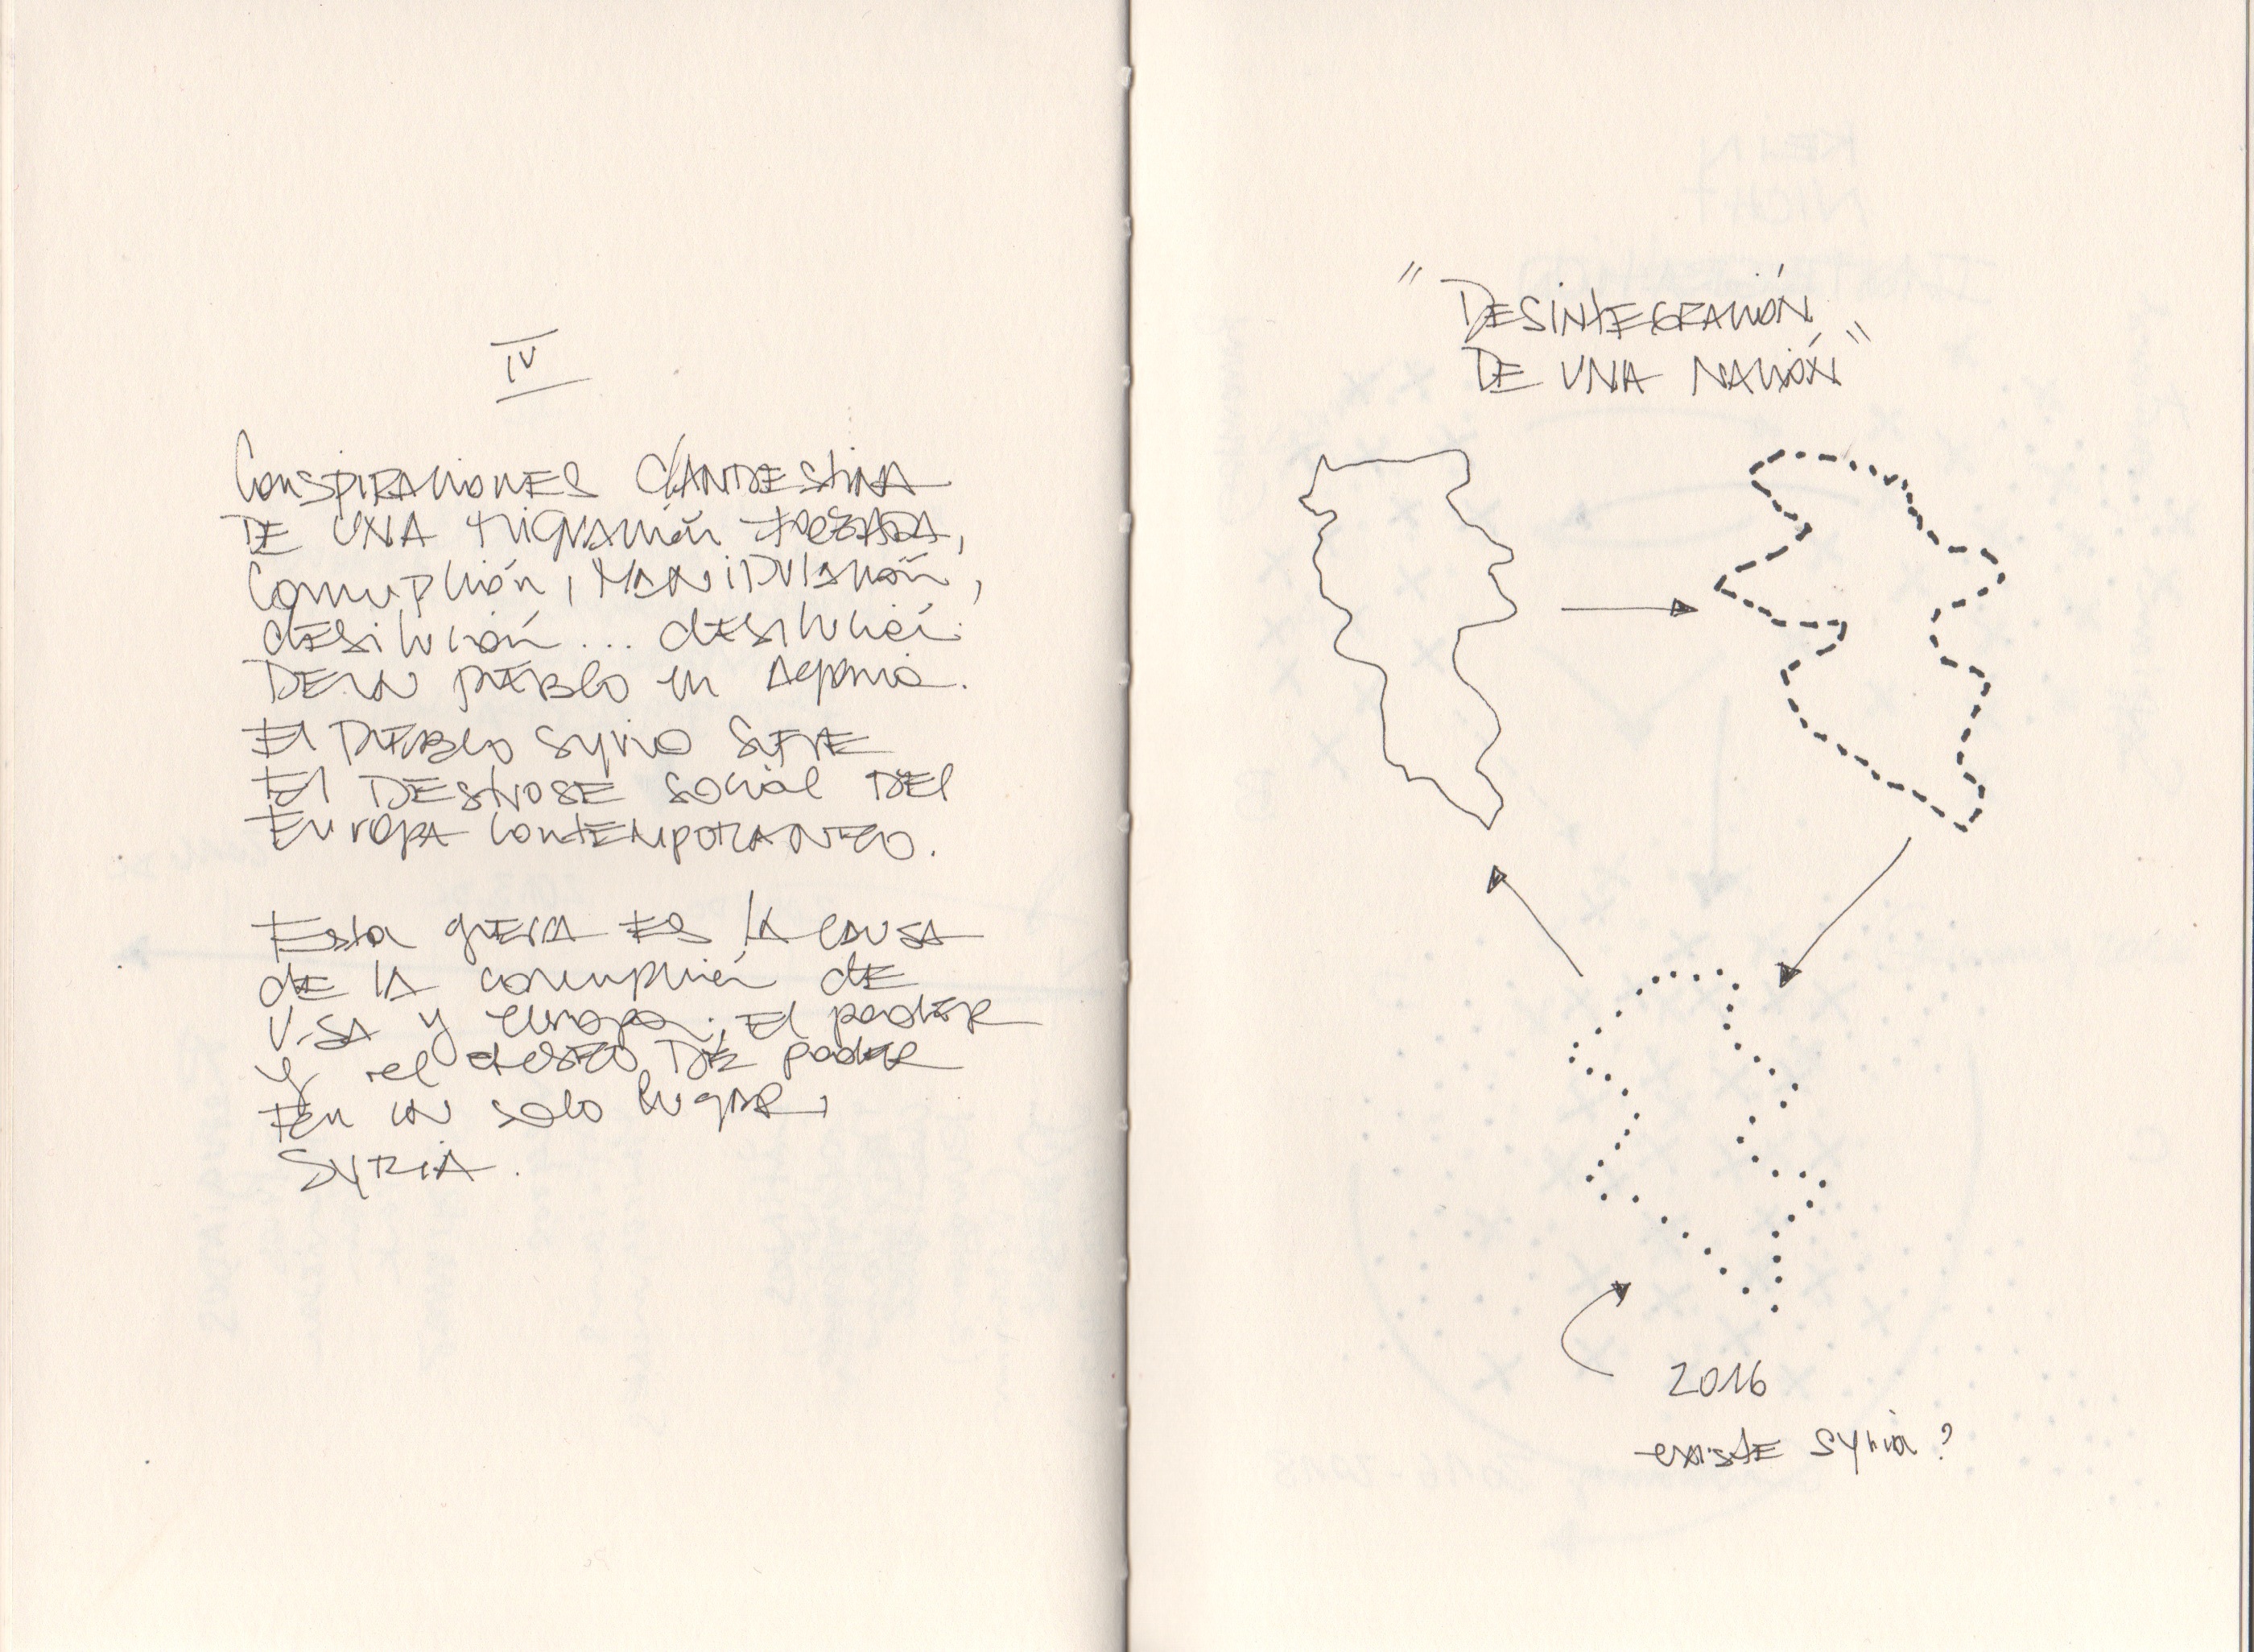 IV
Conspiraciones clandestina
de una migración forzada,
corrupción, manipulación,
desilución... desilución
de un pueblo en agonia.
El pueblo syrio sufre
el destrose social del
Europa contemporaneo.
Esta guerra es la causa
de la corrupción de
USA y europa; El poder
y el deseo de poder
en un solo lugar,
SYRIA.
"DESINTEGRACIÓN
DE UNA NACIÓN"
2016
existe Syria?